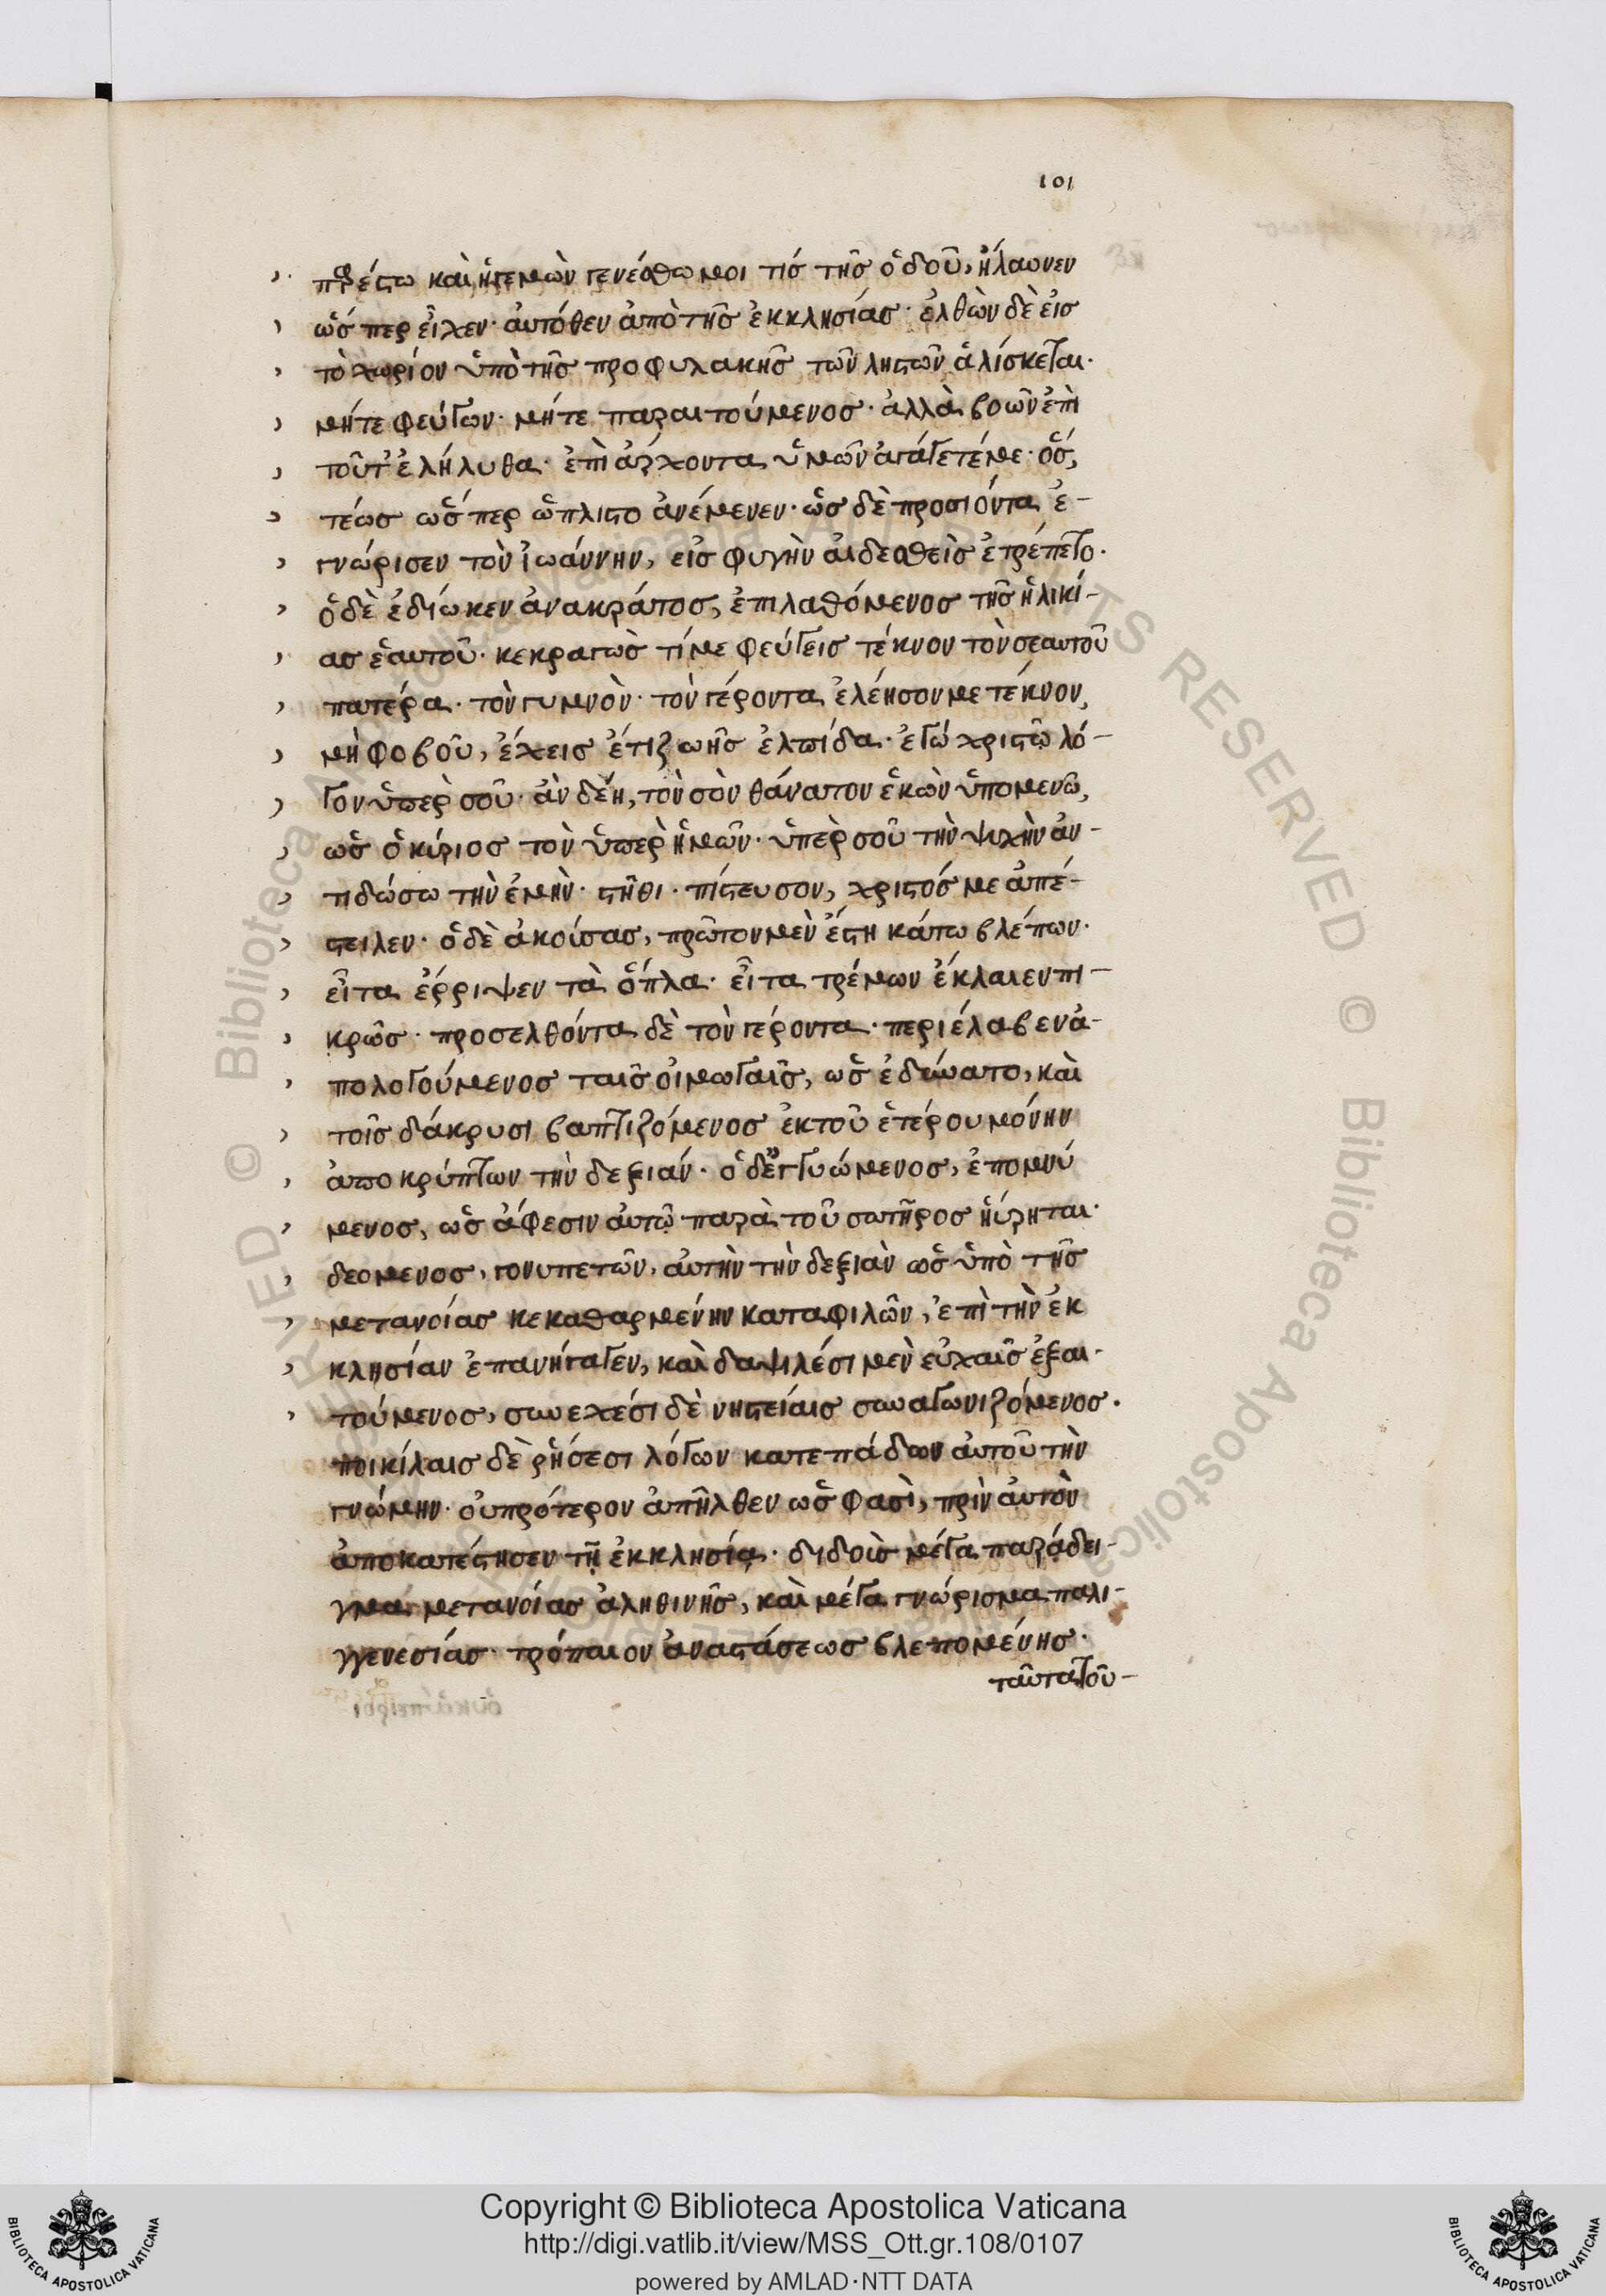 101
παρέστω καὶ ἡγεμὼν γενέσθω μοι τίσ τῆσ ὁδοῦ, ἤλαυνεν
ὥσπερ εἶχεν· αὐτόθεν ἀπὸ τῆσ ἐκκλησίασ· ἐλθὼν δὲ εἰσ
τὸ χωρίον ὑπὸ τῆσ προφυλακῆσ τῶν ληστῶν ἁλίσκεται·
μήτε φεύγων· μήτε παραιτούμενοσ· ἀλλὰ βοῶν ἐπὶ
τοῦτ' ἐλήλυθα· ἐπὶ ἄρχοντα ὑμῶν ἀπάγετέ με· ὅσ,
τέωσ ὥσπερ ὥπλιστο ἀνέμενεν· ὡσ δὲ προσιόντα ἐ-
γνώρισεν τὸν ἰωάννην, εἰσ φυγὴν αἰδεσθεὶσ ἐτρέπετο·
ὁ δὲ ἐδίωκεν ἀνακράτοσ, ἐπιλαθόμενοσ τῆσ ἡλικί-
ασ ἑαυτοῦ· κεκραγὼσ τί με φεύγεισ τέκνον τὸν σεαυτοῦ
πατέρα· τὸν γυμνὸν· τὸν γέροντα ἐλέησον με τέκνον,
μὴ φοβοῦ, ἔχεισ ἔτι ζωῆσ ἐλπίδα· ἐγώ χριστῶ λό-
γον ὑπὲρ σοῦ· ἂν δέη, τὸν σὸν θάνατον ἑκὼν ὑπομενῶ,
ὡσ ὁ κύριοσ τὸν ὑπὲρ ἡμῶν· ὑπὲρ σοῦ τὴν ψυχὴν ἀν-
τιδώσω τὴν ἐμὴν· στῆθι· πίστευσον, χριστόσ με ἀπέ-
στειλεν· ὁ δὲ ἀκούσασ, πρῶτον μὲν ἔστη κάτω βλέπων·
εἶτα ἔρριψεν τὰ ὅπλα· εἶτα τρέμων ἔκλαιεν πι-
κρῶσ· προσελθόντα δὲ τὸν γέροντα· περιέλαβεν ἀ-
πολογούμενοσ ταῖσ οἰμωγαῖσ, ὡσ ἐδύνατο, καὶ
τοῖσ δάκρυσι βαπτιζόμενοσ ἐκ τοῦ ἑτέρου μόνην
ἀποκρύπτων τὴν δεξιάν· ὁ δ' ἐγγυώμενοσ, ἐπομνύ
μενοσ, ὡσ ἄφεσιν αὐτῶ παρὰ τοῦ σωτῆροσ ηὕρηται·
δεομενοσ, γονυπετῶν, αὐτὴν τὴν δεξιὰν ὡσ ὑπὸ τῆσ
μετανοίασ κεκαθαρμένην καταφιλῶν, ἐπὶ τὴν ἐκ
κλησίαν ἐπανήγαγεν, καὶ δαψιλέσι μὲν εὐχαῖσ ἐξαι-
τούμενοσ, συνεχέσι δὲ νηστείαισ συναγωνιζόμενοσ.
ποικίλαισ δὲ ῥήσεσι λόγων κατεπάδων αὐτοῦ τὴν
γνώμην· οὐ πρότερον ἀπῆλθεν ὡσ φασὶ, πρὶν αὐτὸν
ἀποκατέστησεν τῆ ἐκκλησία· διδοὺσ μέγα παράδει-
γμα μετανοίασ ἀληθινῆσ, καὶ μέγα γνώρισμα παλι-
γγενεσίασ· τρόπαιον ἀναστάσεωσ βλεπομένησ·
ταῦτα τοῦ-
Copyright © Biblioteca Apostolica Vaticana
http://digi.vatlib.it/view/MSS_Ott.gr.108/0107
powered by AMLAD·NTT DATA